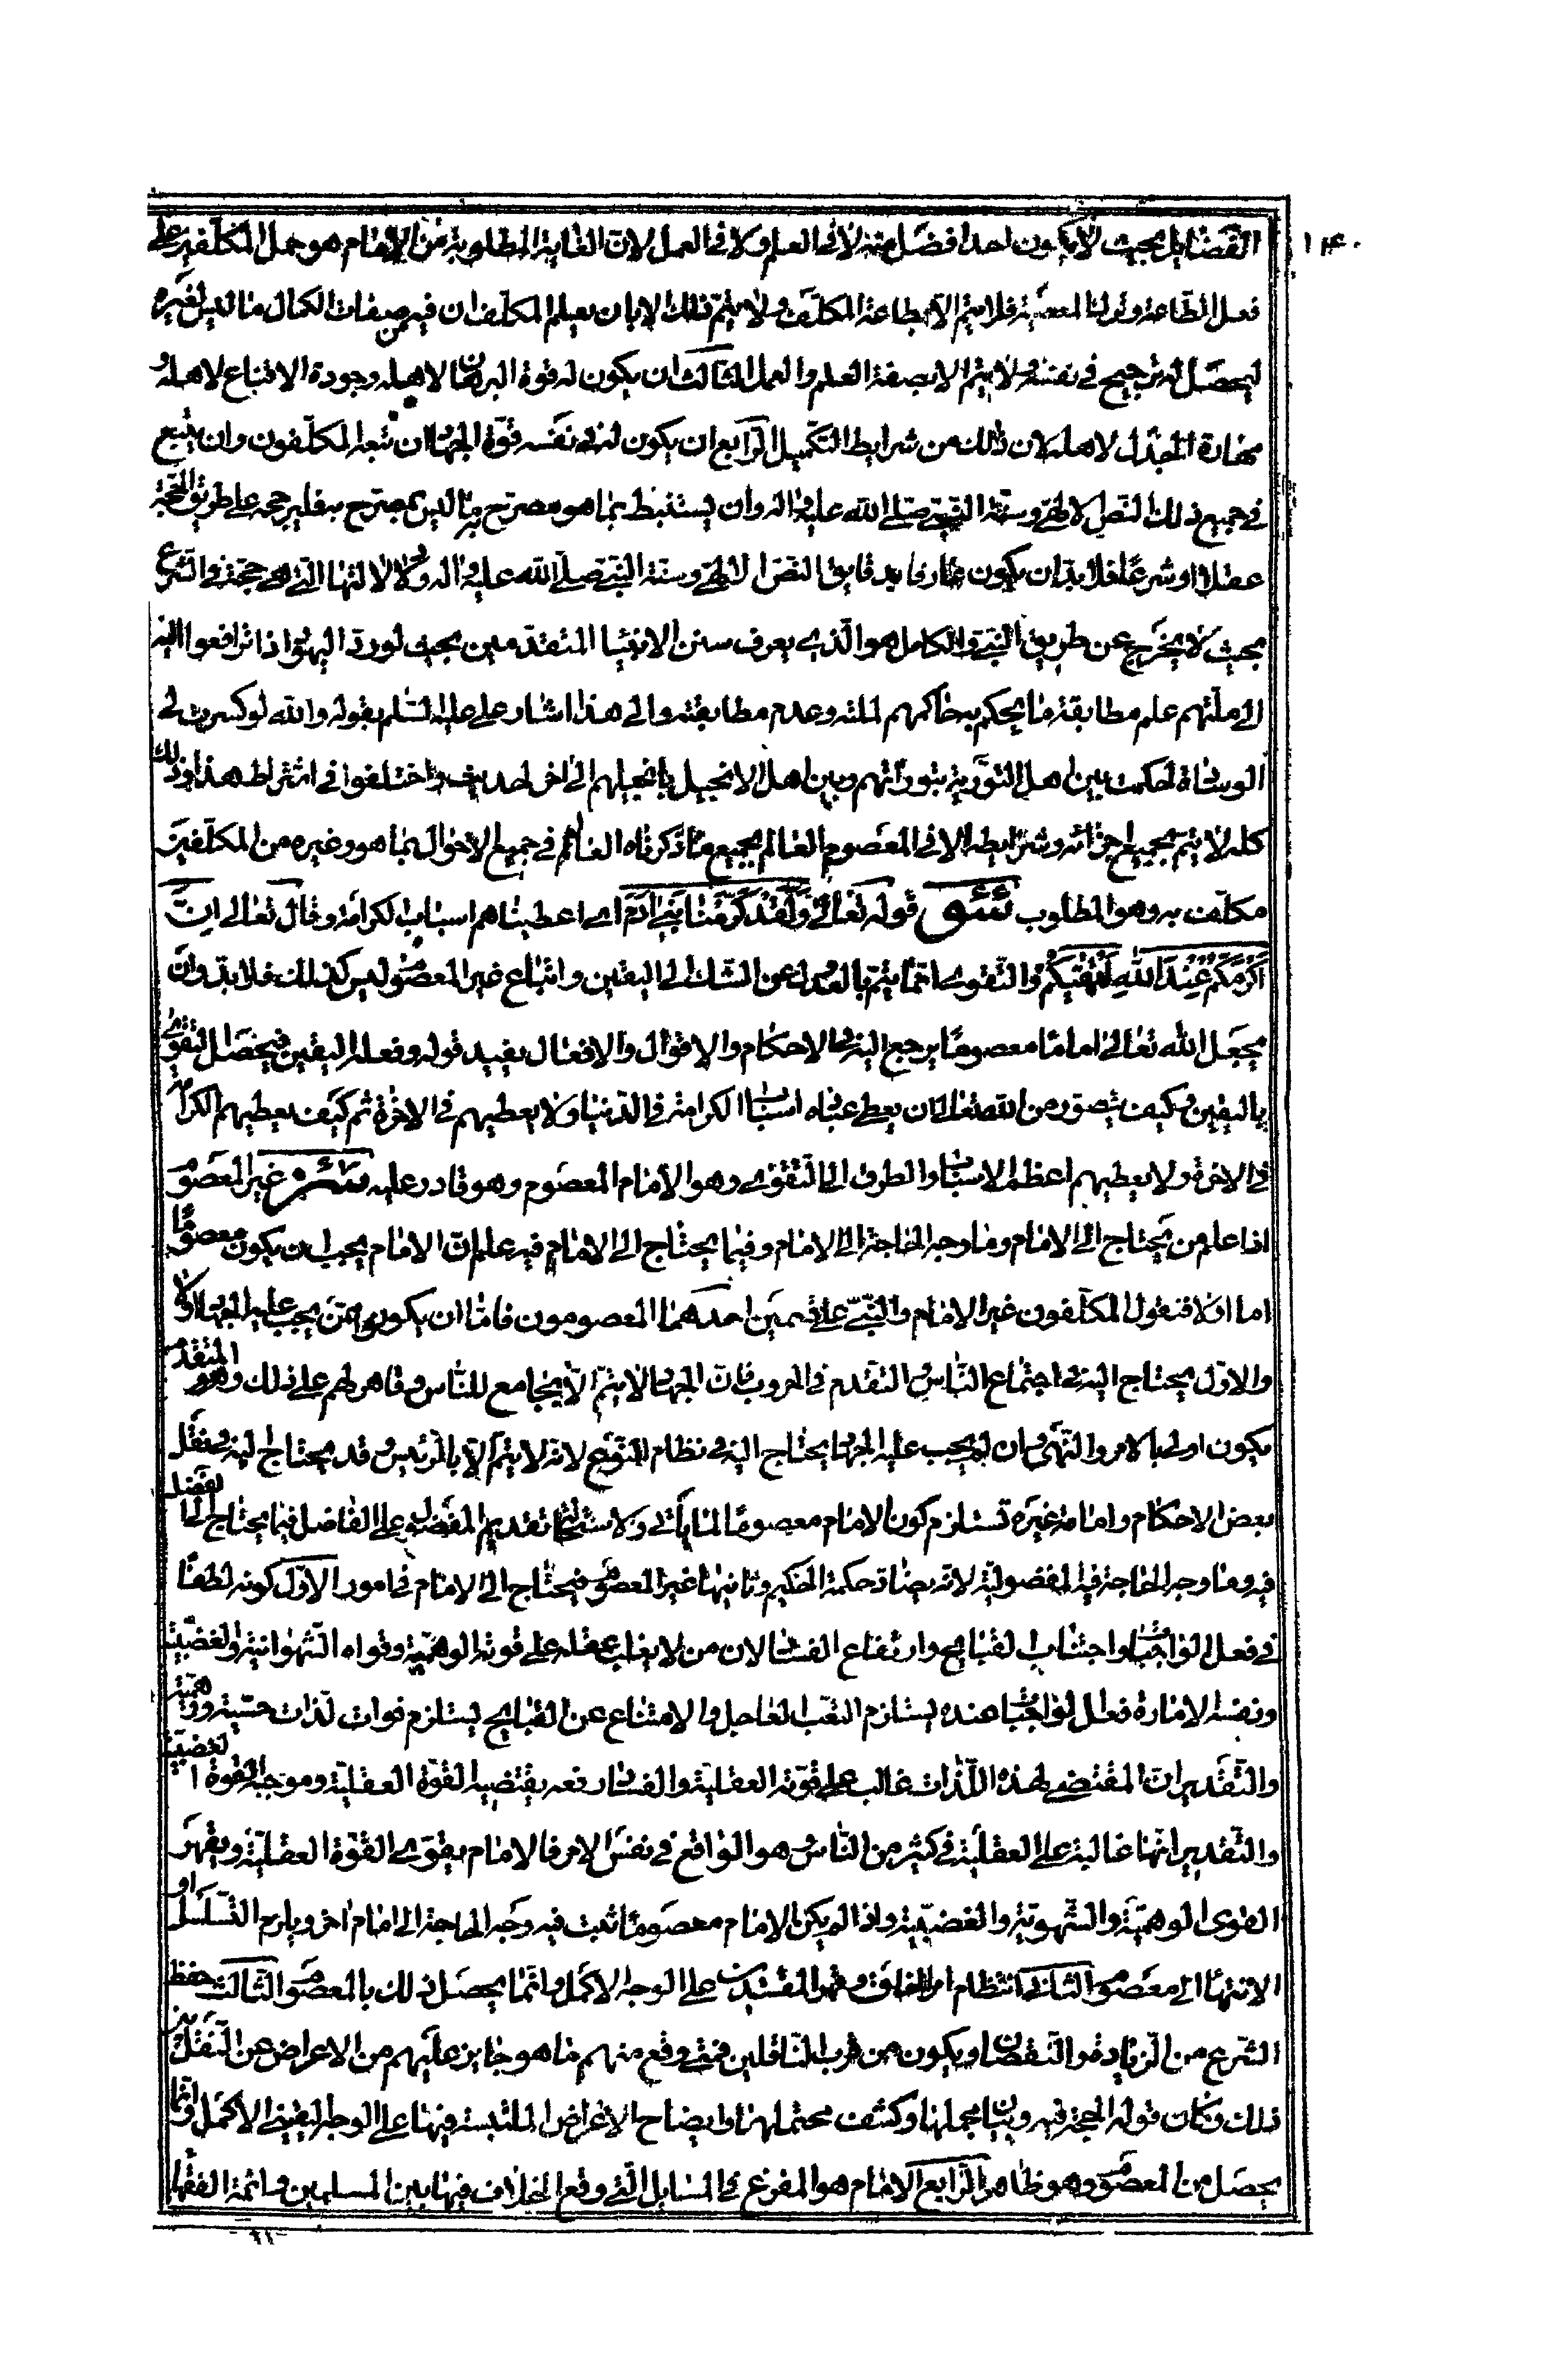 ١٤٠
الفضايل بحيث لا يكون احدا فضل منه لا فى العلم ولا فى العمل لان الغاية المطلوبة من الامام هو حمل المكلفين على
فعل الطاعة وترك المعصية فلا يتم الا بطاعة المكلف ولا يتم ذلك الا بان يعلم المكلف ان فيه من صفات الكمال ما ليس لغيره
ليحصل له ترجيح فى نفسه ولا يتم الا بصفة العلم والعمل الثالث ان يكون له قوة البرهان لاهله وجودة الاقناع لاهله و
مهارة الجدل لاهله لان ذلك من شرايط التكميل الرابع ان يكون له فى نفسه قوة الجهاد ان تبعه المكلفون وان يتبع
فى جميع ذلك النص الالهى وسنة النبى صلى الله عليه واله وان يستنبط بما هو مصرح به ما ليس بمصرح به فليرجحه على طريق الحجة
عقلا او شرعا فلا بد ان يكون عارفا بدقايق النص الالهى وسنة النبى صلى الله عليه واله ودلالالتها التى هى حجة فى الشرع
بحيث لا يخرج عن طريق النبى والكامل هو الذى يعرف سنن الانبياء المتقدمين بحيث لو رد اليهود اذا ترافعوا اليه
الى ملتهم علم مطابقة ما يحكم به حاكمهم لملته وعدم مطابقته والى هذا اشار على عليه السلم بقوله والله لو كسرت لى
الوسادة لحكمت بين اهل التورية بتوراتهم وبين اهل الانجيل بانجيلهم الى اخر الحديث واختلفوا فى اشتراط هذا وذلك
كله لا يتم بجميع اجزائه وشرايطه الا فى المعصوم العالم بجميع ما ذكرناه العالم فى جميع الاحوال بما هو وغيره من المكلفين
مكلف به وهو المطلوب قوله تعالى ولقد كرمنا بنى ادم اى اعطيناهم اسباب الكرامة وقال تعالى ان
اكرمكم عند الله اتقيكم والتقوى انما يتم بالعدول عن الشك الى اليقين واتباع غير المعصوم ليس كذلك فلا بد وان
يجعل الله تعالى اماما معصوما يرجع اليه فى الاحكام والاقوال والافعال يفيد قوله وفعله اليقين فيحصل التقوى
باليقين وكيف يتصور من الله تعالى ان يعطى عباده اسباب الكرامة فى الدنيا ولا يعطيهم فى الاخرة ثم كيف يعطيهم الكرامة
فى الاخرة ولا يعطيهم اعظم الاسباب والطرق الى التقوى وهو الامام المعصوم وهو قادر عليه غير المعصوم
اذا علم من يحتاج الى الامام وما وجه الحاجة الى الامام وفيما يحتاج الى الامام فيه علم ان الامام يجب ان يكون معصوما
اما اولا فنقول المكلفون غير الامام والنبى على قسمين احدهما المعصومون فاما ان يكون ممن يجب عليه الجهاد او لا
والاول يحتاج اليه فى اجتماع الناس التقدم فى الحروب فان الجهاد لا يتم الا بجامع للناس وقاهر لهم على ذلك وهو المتقدم
يكون اولى بالامر والنهى وان لم يجب عليه الجهاد يحتاج اليه فى نظام النوع لانه لا يتم الا بالرئيس وقد يحتاج اليه فى نقل
بعض الاحكام وامامة غيره تستلزم كون الامام معصوما لما ياتى ولاستحالة تقديم المفضول على الفاضل فيما يحتاج الى الفضل
فيه وما وجه الحاجة فيه المفضولية لانه يضاد حكمة الحكيم وثانيها غير المعصوم فيحتاج الى الامام فى امور الاول كونه لطفا
فى فعل الواجبات واجتناب القبايح وارتفاع الفساد لان من لا يغلب عقله على قوته الوهمية وقواه الشهوانية والغضبية
ونفسه الامارة فعل الواجبات عنده يستلزم التعب العاجل والامتناع عن القبايح يستلزم فوات لذات حسية ووهمية
والتقدير ان المقتضى لهذه اللذات غالب على قوته العقلية والفساد رفعه يقتضيه القوة العقلية وموجبه القوة الغضبية
والتقدير انها غالبة على العقلية فى كثير من الناس هو الواقع فى نفس الامر فالامام يقوى القوة العقلية ويقهر
القوى الوهمية والشهوية والغضبية واذا لم يكن الامام معصوما ثبت فيه وجه الحاجة الى امام اخر ويلزم التسلسل او
الانتهاء الى معصوم الثانى انتظام امر الخلق وقهر المفسدين على الوجه الاكمل وانما يحصل ذلك بالمعصوم الثالث حفظ
الشرع من الزيادة والنقصان ويكون من قرب الناقلين فمتى وقع منهم ما هو جايز عليهم من الاعراض عن النقل
ذلك وكان قوله الحجة فيه وبيان مجملها وكشف محتملها وايضاح الاغراض الملتبسة فيها على الوجه اليقينى الاكمل وانما
يحصل من المعصوم وهو ظاهر الرابع الامام هو المفزع فى المسايل التى وقع الخلاف فيها بين المسلمين وائمة الفقهاء